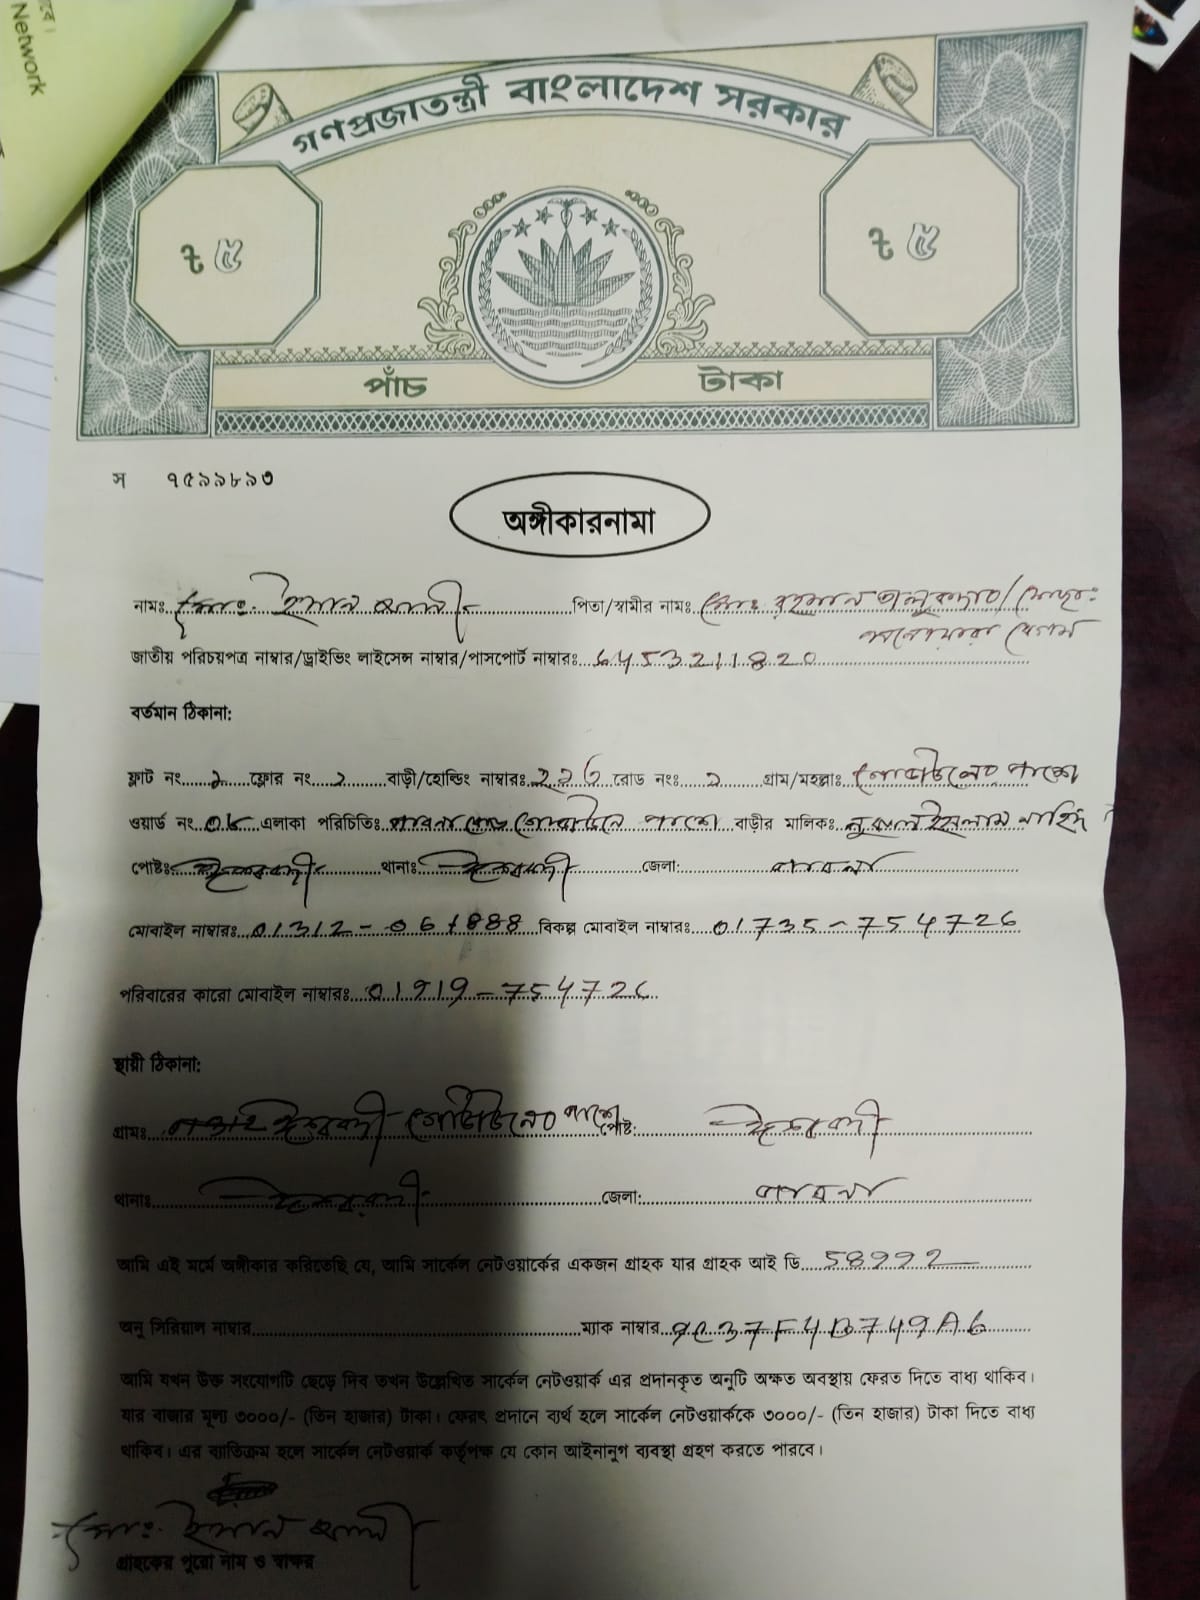 বে।
Network
গণপ্রজাতন্ত্রী বাংলাদেশ সরকার
৳ ৫ ৳ ৫
পাঁচ টাকা
স ৭৫৯৯৮৯৩
অঙ্গীকারনামা
নামঃ মোঃ ইমান আলী পিতা/স্বামীর নামঃ মোঃ রহমান তালুকদার/মোছাঃ
মনোয়ারা বেগম
জাতীয় পরিচয়পত্র নাম্বার/ড্রাইভিং লাইসেন্স নাম্বার/পাসপোর্ট নাম্বারঃ 6453211820
বর্তমান ঠিকানা:
ফ্লাট নং ১ ফ্লোর নং ১ বাড়ী/হোল্ডিং নাম্বারঃ রোড নংঃ ১ গ্রাম/মহল্লাঃ পাশে
ওয়ার্ড নং এলাকা পরিচিতিঃ পাবনা রোড পাশে বাড়ীর মালিকঃ নুরুল ইসলাম
পোষ্টঃ ঈশ্বরদী থানাঃ ঈশ্বরদী জেলা: পাবনা
মোবাইল নাম্বারঃ বিকল্প মোবাইল নাম্বারঃ 01735-754726
পরিবারের কারো মোবাইল নাম্বারঃ 01919-754726
স্থায়ী ঠিকানা:
গ্রামঃ ঈশ্বরদী পাশে পোষ্ট: ঈশ্বরদী
থানাঃ ঈশ্বরদী জেলা: পাবনা
আমি এই মর্মে অঙ্গীকার করিতেছি যে, আমি সার্কেল নেটওয়ার্কের একজন গ্রাহক যার গ্রাহক আই ডি
অনু সিরিয়াল নাম্বার ম্যাক নাম্বার 9C37F4B749A6
আমি যখন উক্ত সংযোগটি ছেড়ে দিব তখন উল্লেখিত সার্কেল নেটওয়ার্ক এর প্রদানকৃত অনুটি অক্ষত অবস্থায় ফেরত দিতে বাধ্য থাকিব।
যার বাজার মূল্য ৩০০০/- (তিন হাজার) টাকা। ফেরৎ প্রদানে ব্যর্থ হলে সার্কেল নেটওয়ার্ককে ৩০০০/- (তিন হাজার) টাকা দিতে বাধ্য
থাকিব। এর ব্যতিক্রম হলে সার্কেল নেটওয়ার্ক কর্তৃপক্ষ যে কোন আইনানুগ ব্যবস্থা গ্রহণ করতে পারবে।
মোঃ ইমান আলী
গ্রাহকের পুরো নাম ও স্বাক্ষর